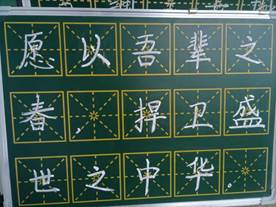 愿以吾辈之
春，捍卫盛
世之中华。